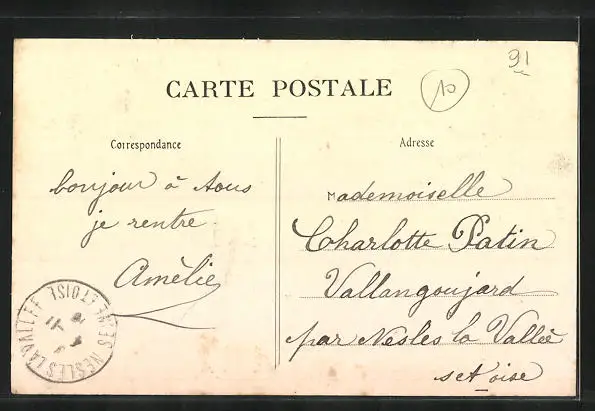 91
CARTE POSTALE
10
Correspondance
Adresse
bonjour à tous
je rentre.
Amèlie
Mademoiselle
Charlotte Patin
Vallangoujard
par Nesles la Vallée
set oise
NESLES LA VALLÉE
SEINE ET OISE